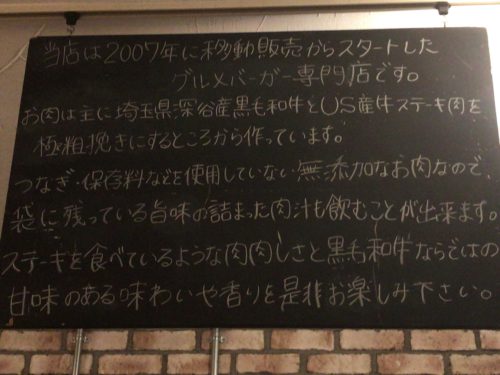 当店は2007年に移動販売からスタートした
グルメバーガー専門店です。
お肉は主に埼玉県深谷産黒毛和牛とUS産牛ステーキ肉を
極粗挽きにするところから作っています。
つなぎ・保存料などを使用していない無添加なお肉なので、
袋に残っている旨味の詰まった肉汁も飲むことが出来ます。
ステーキを食べているような肉肉しさと黒毛和牛ならではの
甘味のある味わいや香りを是非お楽しみ下さい。